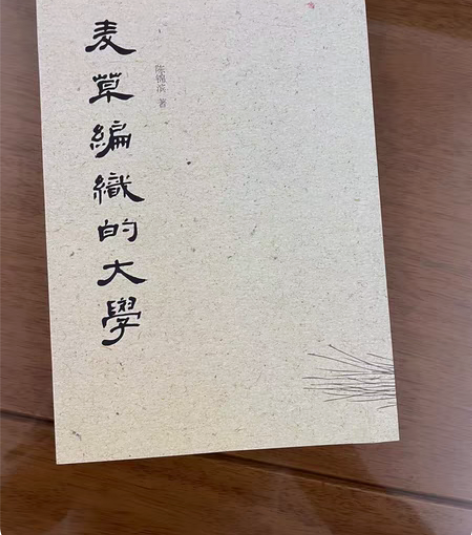 麦草編織的大學
陈锦滨 著